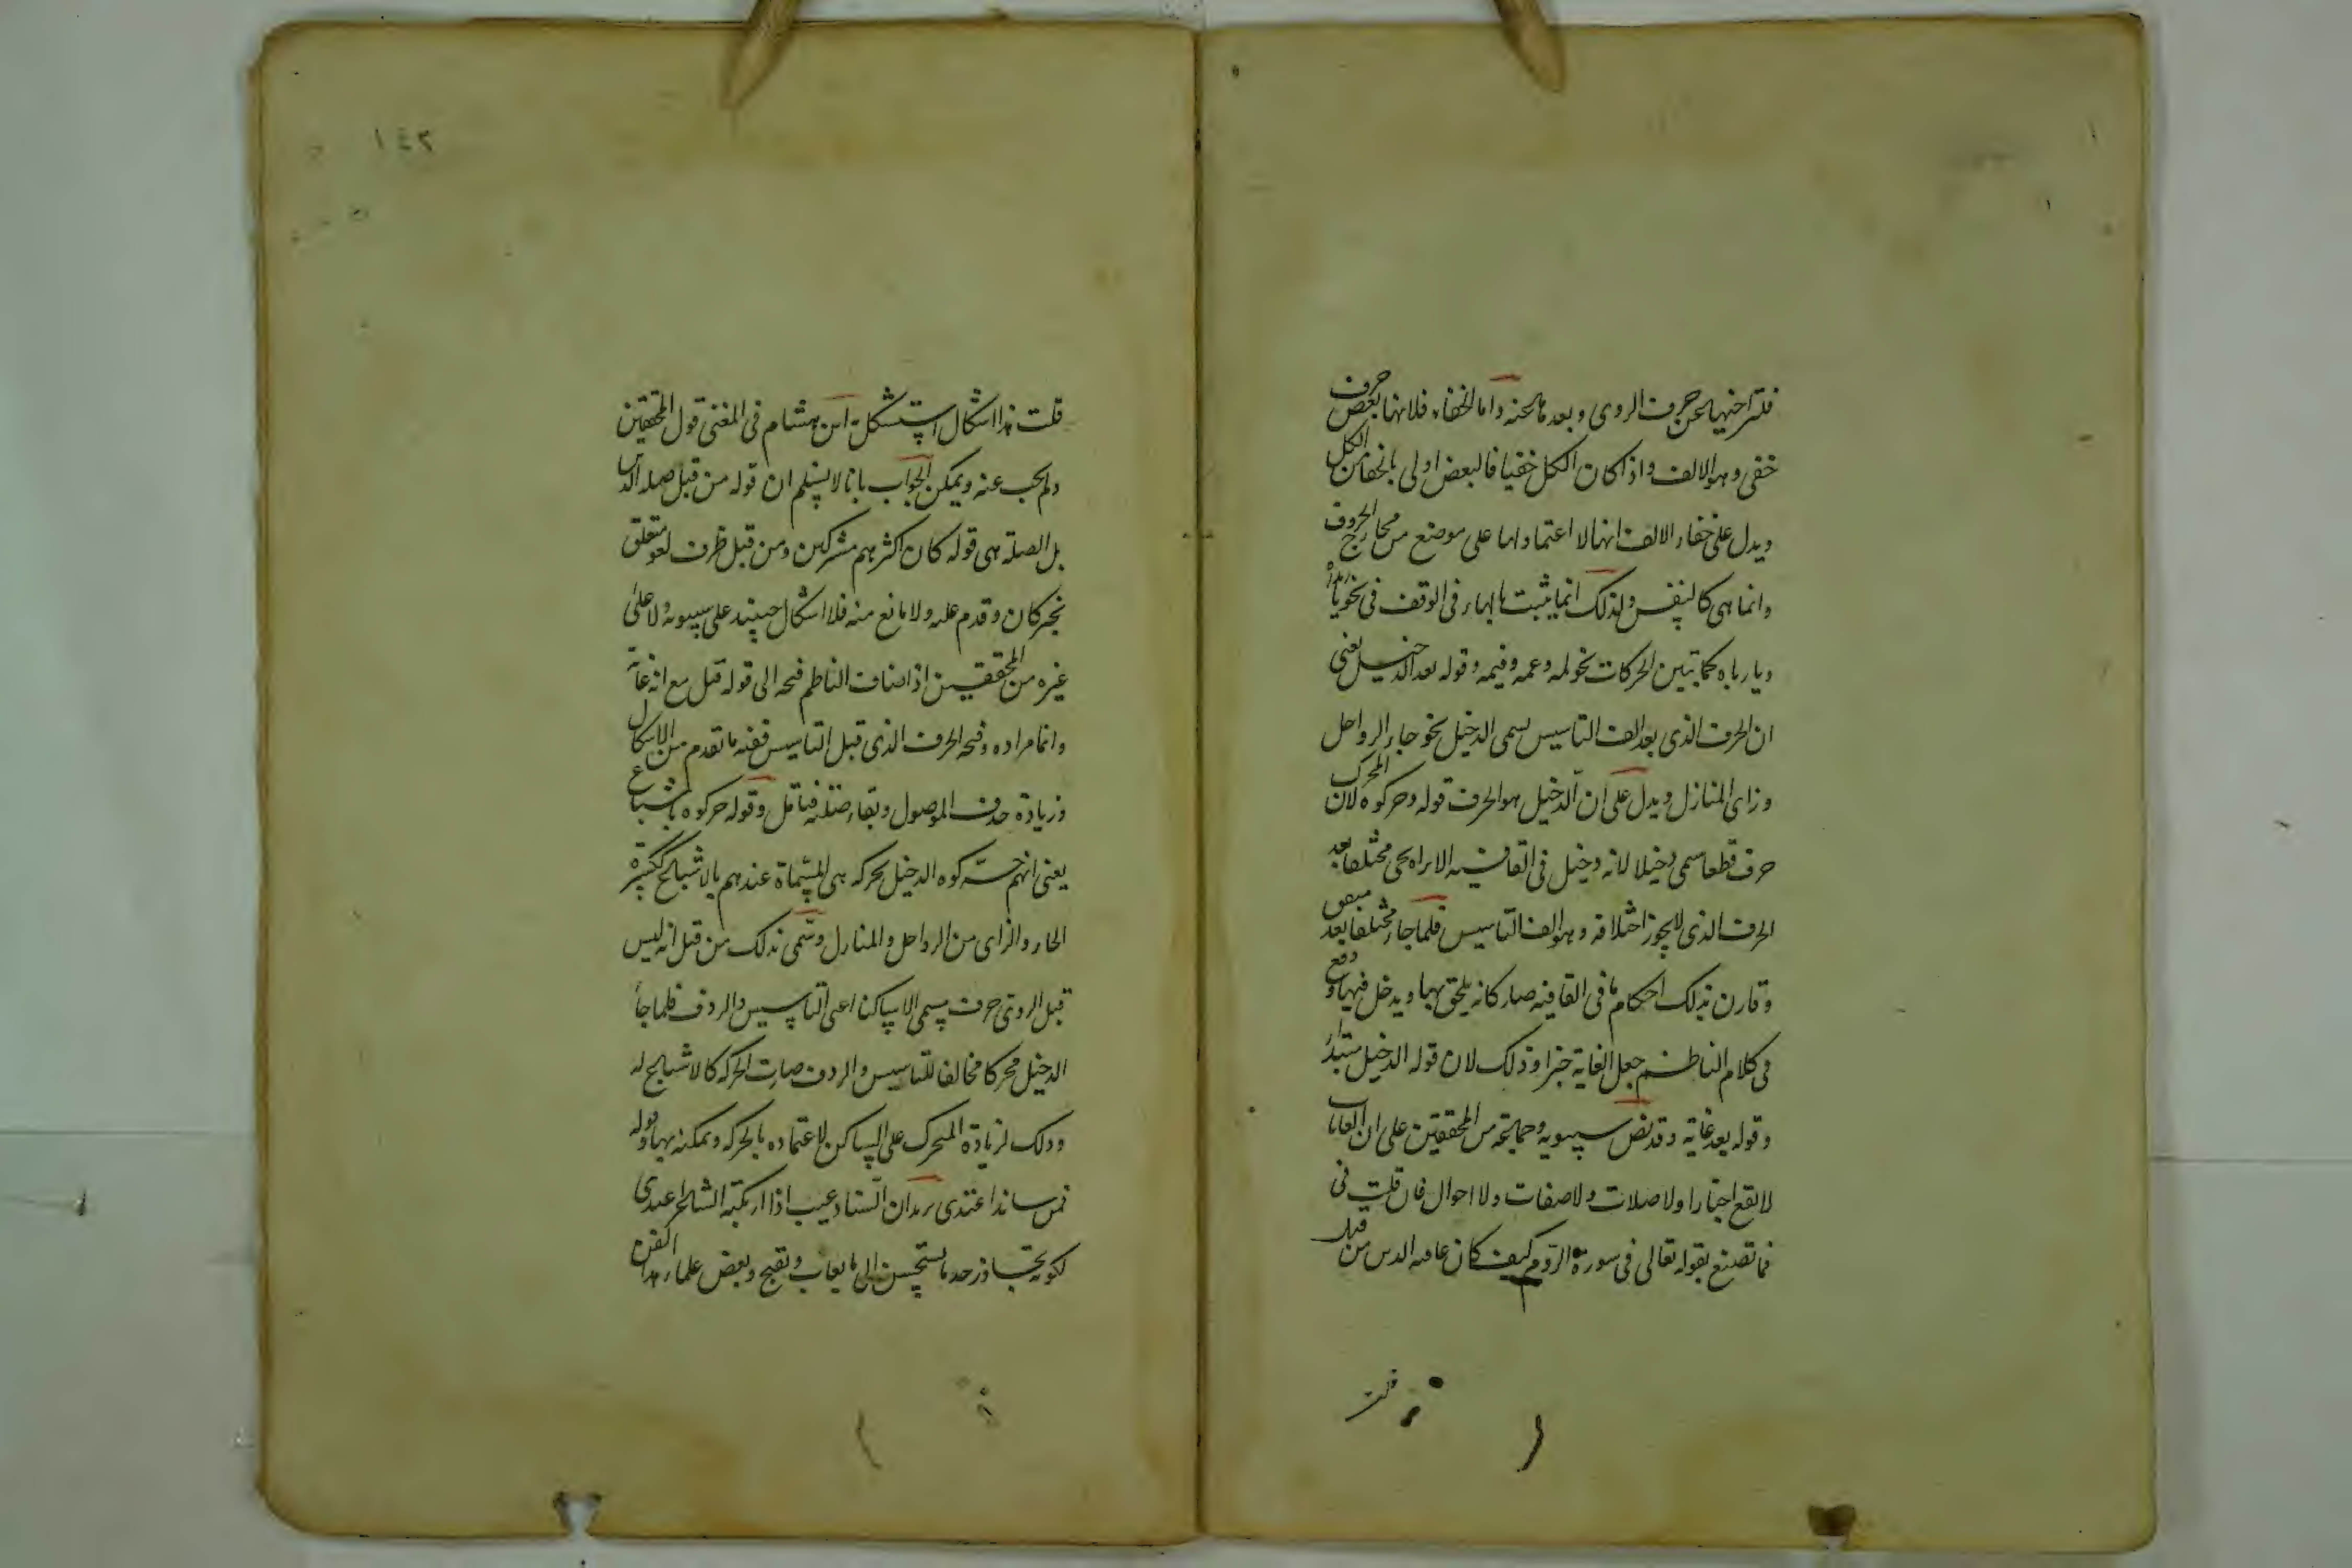 فلتراخيها عن حرف الروى وبعدها عنه واما الخفاء فلانها بعض حرف
خفى وهو الالف واذا كان الكل خفيا فالبعض اولى بالخفا من الكل
ويدل على خفاء الالف انها لا اعتماد لها على موضع من مخارج الحروف
وانما هى كالنفس ولذلك انما يثبت بالهاء فى الوقف فى نحو يا
ويا رباه كما تبين الحركات نحو لمه وعمه وفيمه وقوله بعد الدخيل يعنى
ان الحرف الذى بعد الف التاسيس يسمى الدخيل نحو حاء الرواحل
وزاى المنازل ويدل على ان الدخيل هو الحرف المحرك قوله وحركوه لان
حرف قطعا سمى دخيلا لانه دخيل فى القافيه الا تراه يجى مختلفا بعد
الحرف الذى لا يجوز اختلافه وهو الف التاسيس فلما جاء مختلفا بعد متفق
وقارن بذلك احكام ما فى القافيه صار كانه يلحق بها ويدخل فيها وقع
فى كلام الناظم جعل الغاية خبرا وذلك لان قوله الدخيل مبتدا
وقوله بعد غاية وقد نص سيبويه وجماعة من المحققين على ان الغايات
لا تقع اخبارا ولا صلات ولا صفات ولا احوال فان قلت فى
فما تصنع بقوله تعالى فى سورة الروم كيف كان عاقبه الذين من قبل
قلت
١٤٢
قلت هذا اشكال استشكل به ابن هشام فى المغنى قول المحققين
ولم يجب عنه ويمكن الجواب بانا لا نسلم ان قوله من قبل صله الذين
بل الصلة هى قوله كان اكثرهم مشركين ومن قبل ظرف لغو متعلق
بخبر كان وقدم عليه ولا مانع منه فلا اشكال حينئذ على سيبويه ولا على
غيره من المحققين اذ اضاف الناظم فتحه الى قوله قبل مع انه غاية
وانما مراده وفتحه الحرف الذى قبل التاسيس ففيه ما تقدم من الاشكال
وزيادة حذف الموصول وبقاء صلته فتامل وقوله حركوه باشباع
يعنى انهم حركوه الدخيل بحركه هى المسماة عندهم بالاشباع ككسرة
الحاء والزاى من الرواحل والمنازل وسمى بذلك من قبل انه ليس
قبل الروى حرف يسمى الا ساكنا اعنى التاسيس والردف فلما جاء
الدخيل محركا مخالفا للتاسيس والردف صارت الحركه كالاشباع له
وذلك لزيادة المتحرك على الساكن لاعتماده بالحركه وتمكنه بها وقوله
فمن ساندا عتدى يريد ان السناد عيب اذا ارتكبه الشاعر اعتدى
لكونه تجاوز حد ما يستحسن الى ما يعاب ويقبح وبعض علماء هذا الفن